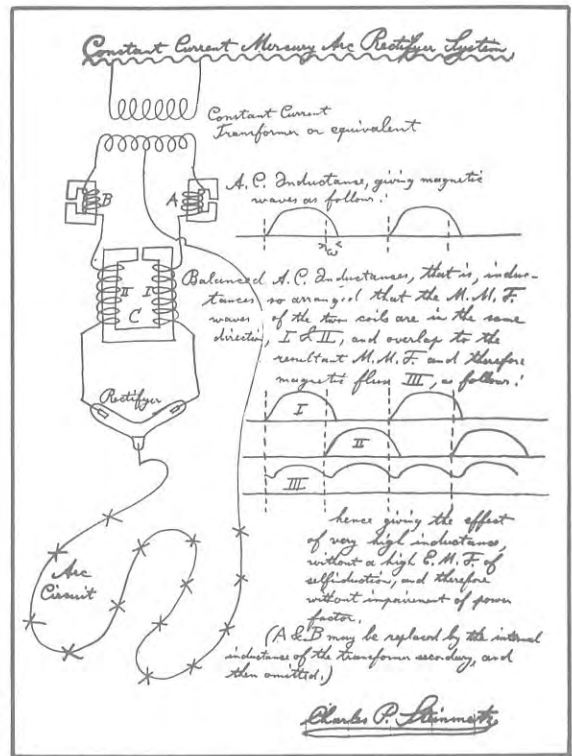 Constant Current Mercury Arc Rectifyer System
Constant Current
Transformer or equivalent
B
A
A. C. Inductance, giving magnetic
waves as follow:
ω
II
I
C
Balanced A. C. Inductances, that is, induc-
tances so arranged that the M. M. F.
waves of the two coils are in the same
direction, I & II, and overlap to the
resultant M. M. F. and therefore
magnetic flux III, as follow:
Rectifyer
I
II
III
Arc
Circuit
hence giving the effect
of very high inductance,
without a high E. M. F. of
selfinduction, and therefore
without impairement of power
factor.
(A & B may be replaced by the internal
inductance of the transformer secondary, and
then omitted.)
Charles P. Steinmetz